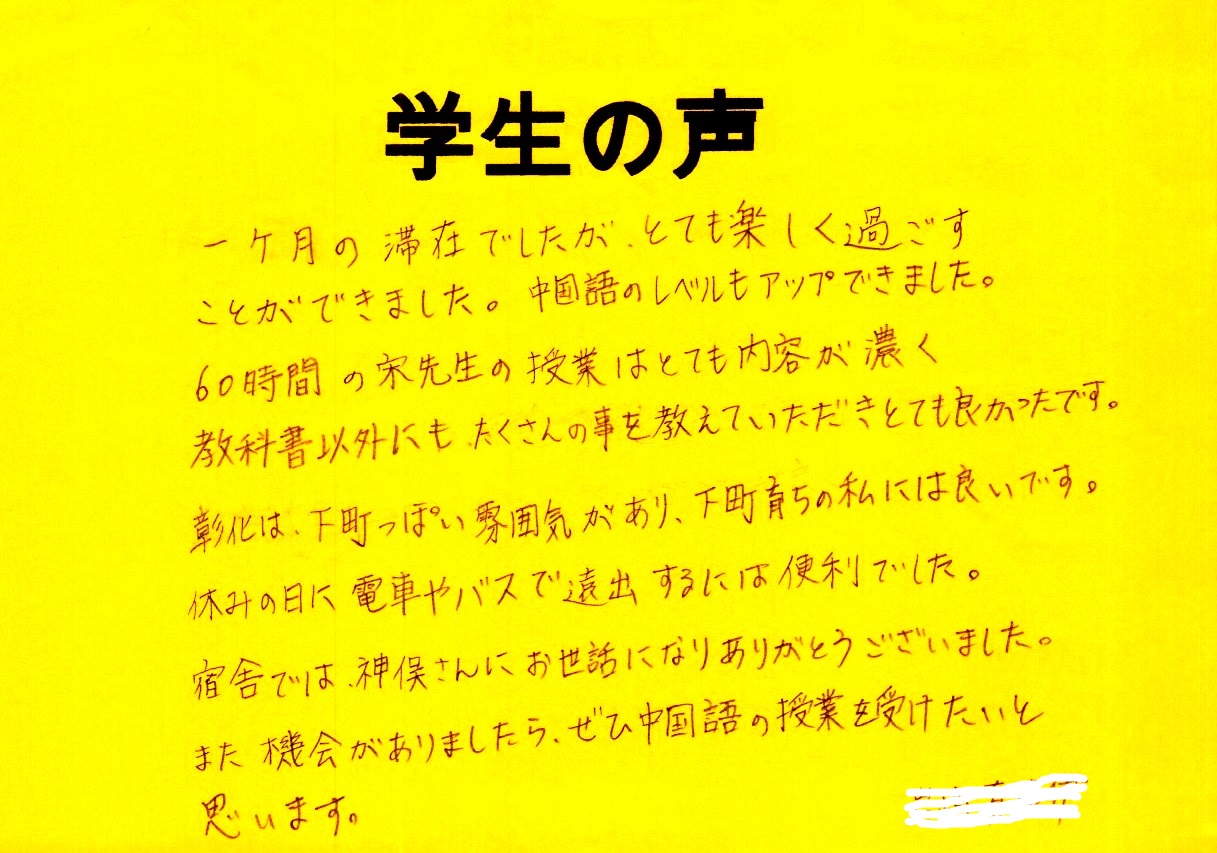 学生の声
一ケ月の滞在でしたが、とても楽しく過ごす
ことができました。中国語のレベルもアップできました。
60時間の宋先生の授業はとても内容が濃く
教科書以外にも、たくさんの事を教えていただきとても良かったです。
彰化は、下町っぽい雰囲気があり、下町育ちの私には良いです。
休みの日に電車やバスで遠出するには便利でした。
宿舎では、神俣さんにお世話になりありがとうございました。
また機会がありましたら、ぜひ中国語の授業を受けたいと
思います。